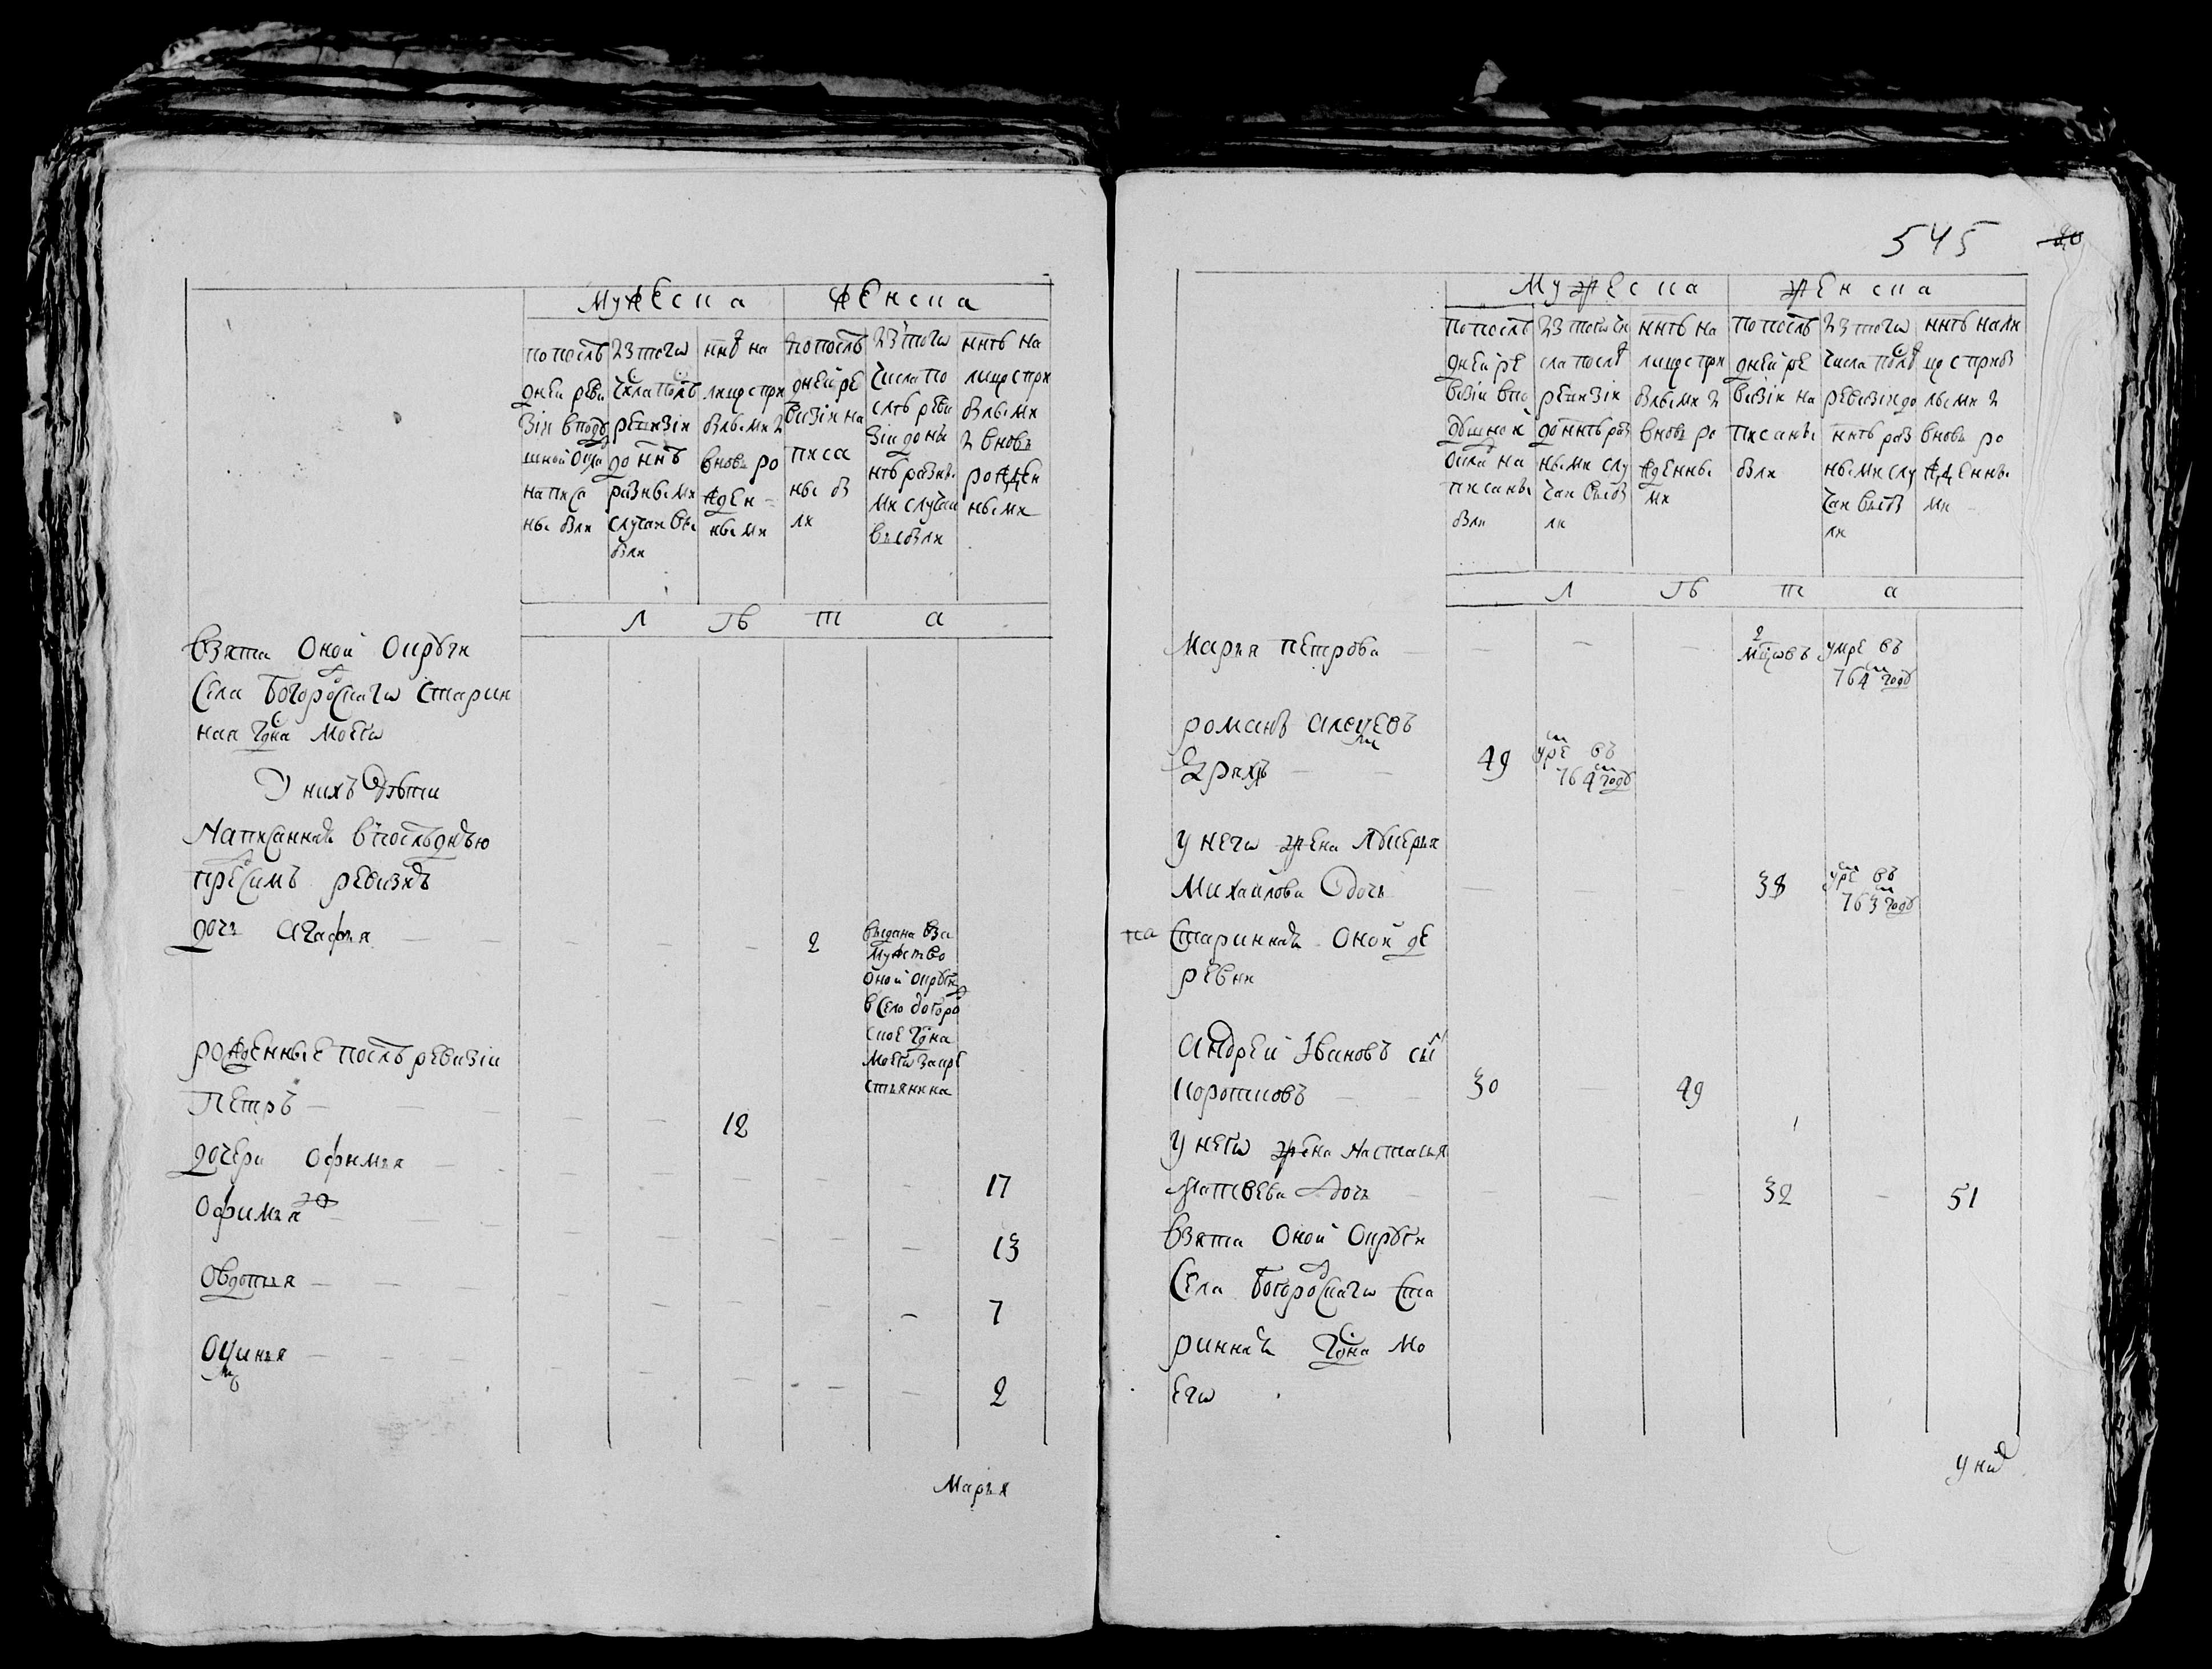 Мужеска
женска
по послѣ
дней реви
зіи вподу
шной окла
написа
ны были
изтого
числапослѣ
ревизіи
до ннѣ
разными
случаи вы
были
ннѣ на
лицо спри
былыми и
вновь ро
жден-
ными
по послѣ
дней ре
визіи на
писа
ны бы
ли
изтого
числа по
слѣ реви
зіи до ны
нѣ разны
ми случаи
выбыли
ннѣ на
лицо спри
былыми
и вновь
рожден
ными
л ѣ т а
взята оной округи
села богороцкаго старин
ная гдна моего
У нихъ дѣти
написанная впослѣднюю
пред симъ ревизию
дочь агафья — — — — — 2
выдана вза
мужство
оной округи
всело богоро
цкое гдна
моего за кре
стьянина
рожденные послѣ ревизіи
Петръ — — — — 12
дочери офимья — — — — — 17
офимья ж — — — — — — 13
овдотья — — — — — — — 7
оксинья — — — — — — — 2
Марья
545
20
Мужеска
женска
по послѣ
дней ре
визіи впо
душной
окла на
писаны
были
изтого чи
сла послѣ
ревизіи
до ннѣ раз
ными слу
чаи выбы
ли
ннѣ на
лицо спри
былыми и
вновь ро
жденны
ми
по послѣ
дней ре
визіи на
писаны
были
изтого
числа послѣ
ревизіи до
ннѣ раз
ными слу
чаи выбы
ли
ннѣ нали
цо с прибы
лыми и
вновь ро
жденны
ми
л ѣ т а
марья петрова — — — — 2 мцовъ умре въ 764м году
романъ алексѣевъ
49 умре въ 764м году
у него жена лукерья
михайлова дочь — — 38 умре въ 763м году
старинная оной де
ревни
андрей ивановъ сы
коротковъ — — 30 — 49
у него жена настасья
матвѣева дочь — — — — 32 — 51
взята оной округи
села богороцкаго ста
ринная гдна мо
его
у них